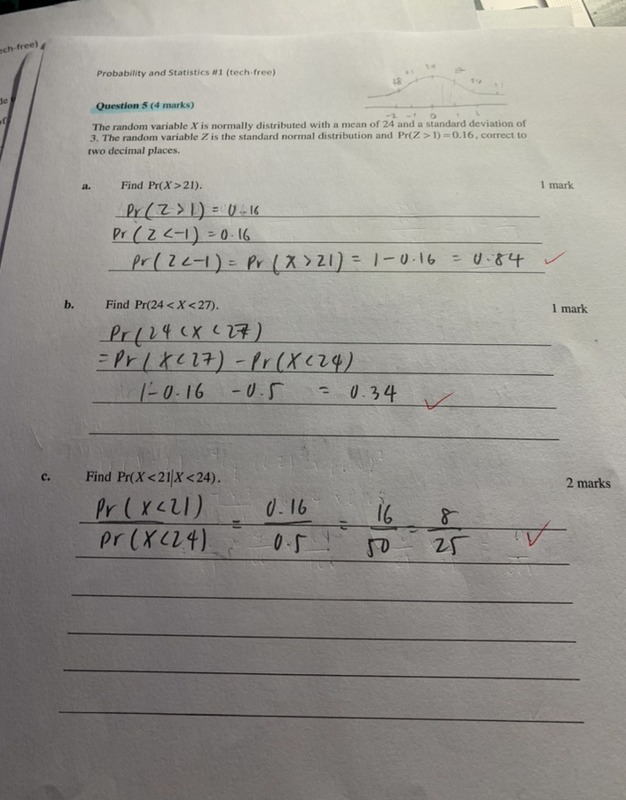 ech-free)
Probability and Statistics #1 (tech-free)
Question 5 (4 marks)
The random variable X is normally distributed with a mean of 24 and a standard deviation of
3. The random variable Z is the standard normal distribution and Pr(Z > 1) = 0.16, correct to
two decimal places.
a. Find Pr(X > 21). 1 mark
Pr(Z>1) = 0.16
Pr(Z<-1) = 0.16
Pr(Z<-1) = Pr(X>21) = 1-0.16 = 0.84
b. Find Pr(24 < X < 27). 1 mark
Pr(24<X<27)
= Pr(X<27) - Pr(X<24)
1-0.16 -0.5 = 0.34
c. Find Pr(X < 21|X < 24). 2 marks
Pr(X<21) / Pr(X<24) = 0.16 / 0.5 = 16 / 50 = 8 / 25